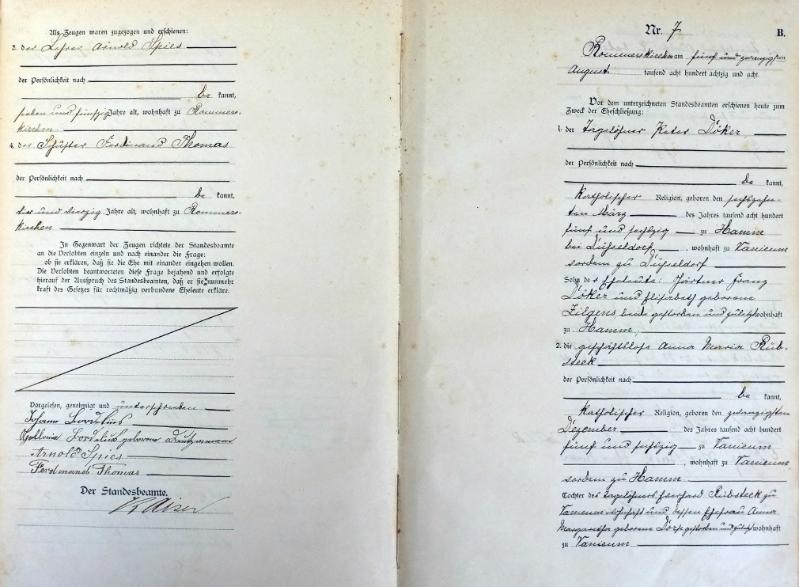 Als Zeugen waren zugezogen und erschienen:
3. der Lehrer Arnold Spies
der Persönlichkeit nach
be kannt,
sieben und fünfzig Jahre alt, wohnhaft zu Rommers-
kirchen
4. der Schuster Ferdinand Thomas
der Persönlichkeit nach
be kannt,
drei und vierzig Jahre alt, wohnhaft zu Rommers-
kirchen
In Gegenwart der Zeugen richtete der Standesbeamte
an die Verlobten einzeln und nach einander die Frage:
ob sie erklären, daß sie die Ehe mit einander eingehen wollen.
Die Verlobten beantworteten diese Frage bejahend und erfolgte
hierauf der Ausspruch des Standesbeamten, daß er sie nunmehr
kraft des Gesetzes für rechtmäßig verbundene Eheleute erkläre.
Vorgelesen, genehmigt und unterschrieben
Johann
geborene
Arnold Spies
Ferdinand Thomas
Der Standesbeamte.
Kaiser
Nr. 7
B.
Rommerskirchen am fünf und zwanzigsten
August tausend acht hundert achtzig und acht
Vor dem unterzeichneten Standesbeamten erschienen heute zum
Zweck der Eheschließung:
1. der Tagelöhner Peter Döker
der Persönlichkeit nach
be kannt,
katholischer Religion, geboren den sechszehn-
ten März des Jahres tausend acht hundert
fünf und sechzig zu Hamm
bei Düsseldorf, wohnhaft zu Vanicum
sondern zu Düsseldorf
Sohn der Eheleute: Gärtner Franz
Döker und Elisabeth geborene
Zilgens beide gestorben und zuletzt wohnhaft
zu Hamm
2. die geschäftslose Anna Maria Rüb-
steck
der Persönlichkeit nach
be kannt,
katholischer Religion, geboren den zwanzigsten
Dezember des Jahres tausend acht hundert
fünf und sechzig zu Vanicum
, wohnhaft zu Vanicum
sondern zu Hamm
Tochter des Tagelöhners Everhard Rübsteck zu
Vanicum wohnhaft und dessen Ehefrau Anna
Margaretha geborene gestorben und zuletzt wohnhaft
zu Vanicum